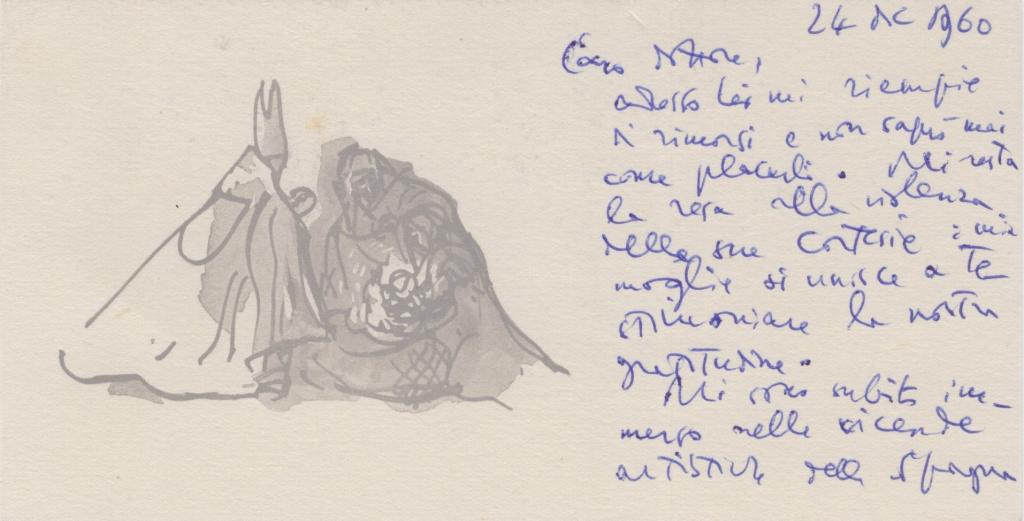 24 dic 1960
Caro Dottore,
adesso Lei mi riempie
di rimorsi e non saprò mai
come placarli. Mi resta
la resa alla violenza
delle sue cortesie: mia
moglie si unisce a te
stimoniare la nostra
gratitudine.
Mi sono subito im-
merso nelle vicende
artistiche della Spagna